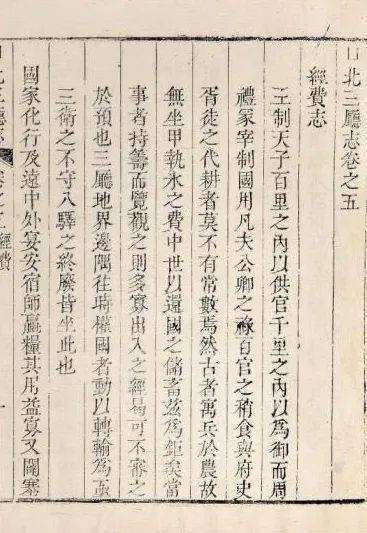 口北三廳志卷之五
經費志
王制天子百里之內以供官千里之內以為御而周
禮冢宰制國用凡夫公卿之祿百官之稍食與府史
胥徒之代耕者莫不有常數焉然古者寓兵於農故
無坐甲執氷之費中世以還國之儲畜茲為鉅矣當
事者持籌而覽觀之則多寡出入之經曷可不審之
於預也三廳地界邊隅往時權國者動以轉輸為亟
三衛之不守八驛之終廢皆坐此也
國家化行及遠中外宴安宿師贏糧其用益寡又闢塞
口北三廳志 卷之五 經費 一